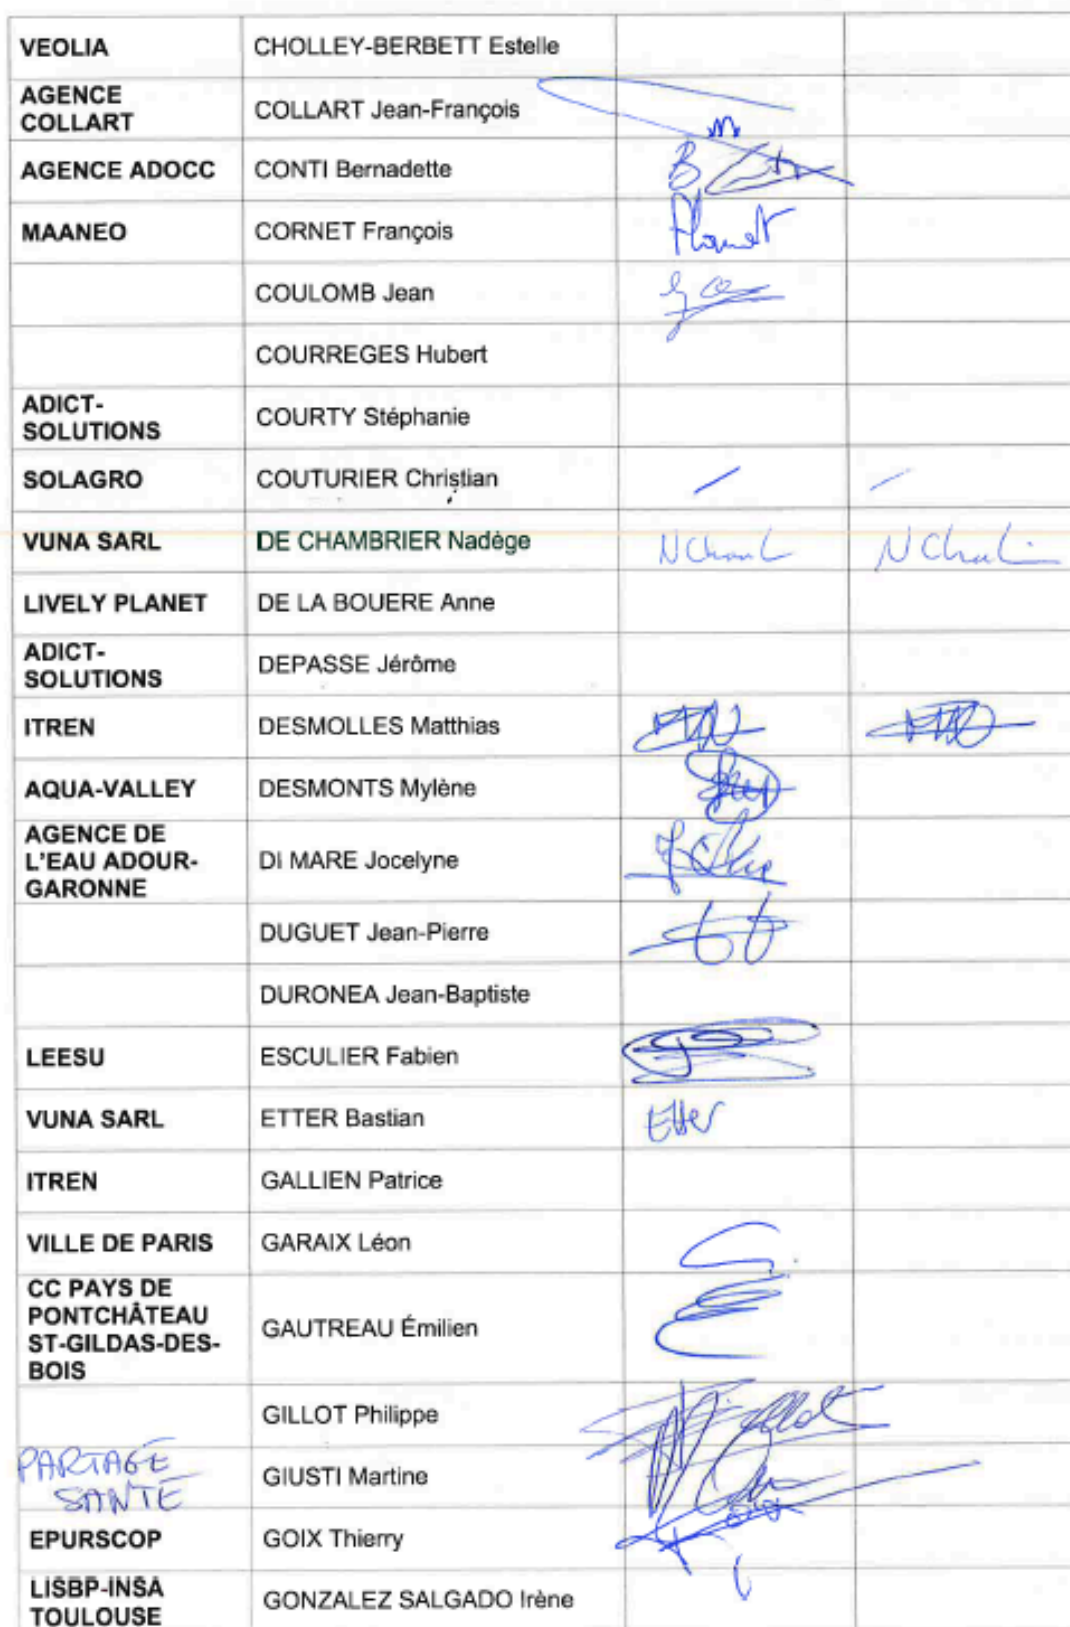 VEOLIA CHOLLEY-BERBETT Estelle
AGENCE
COLLART COLLART Jean-François
AGENCE ADOCC CONTI Bernadette
MAANEO CORNET François
COULOMB Jean
COURREGES Hubert
ADICT-
SOLUTIONS COURTY Stéphanie
SOLAGRO COUTURIER Christian
VUNA SARL DE CHAMBRIER Nadège
LIVELY PLANET DE LA BOUERE Anne
ADICT-
SOLUTIONS DEPASSE Jérôme
ITREN DESMOLLES Matthias
AQUA-VALLEY DESMONTS Mylène
AGENCE DE
L'EAU ADOUR-
GARONNE DI MARE Jocelyne
DUGUET Jean-Pierre
DURONEA Jean-Baptiste
LEESU ESCULIER Fabien
VUNA SARL ETTER Bastian Etter
ITREN GALLIEN Patrice
VILLE DE PARIS GARAIX Léon
CC PAYS DE
PONTCHÂTEAU
ST-GILDAS-DES-
BOIS GAUTREAU Émilien
GILLOT Philippe
PARTAGE
SANTÉ GIUSTI Martine
EPURSCOP GOIX Thierry
LISBP-INSA
TOULOUSE GONZALEZ SALGADO Irène